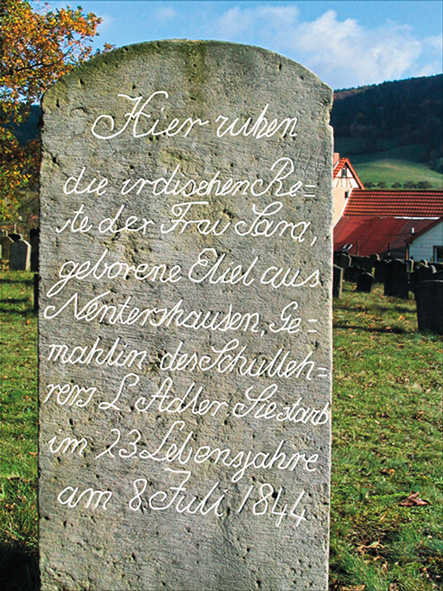 Hier ruhen
die irdischen Re=
ste der Frau Sara,
geborene Eliel aus
Nentershausen, Ge=
mahlin des Schulleh=
rers L Adler Sie starb
im 23 Lebensjahre
am 8 Juli 1844